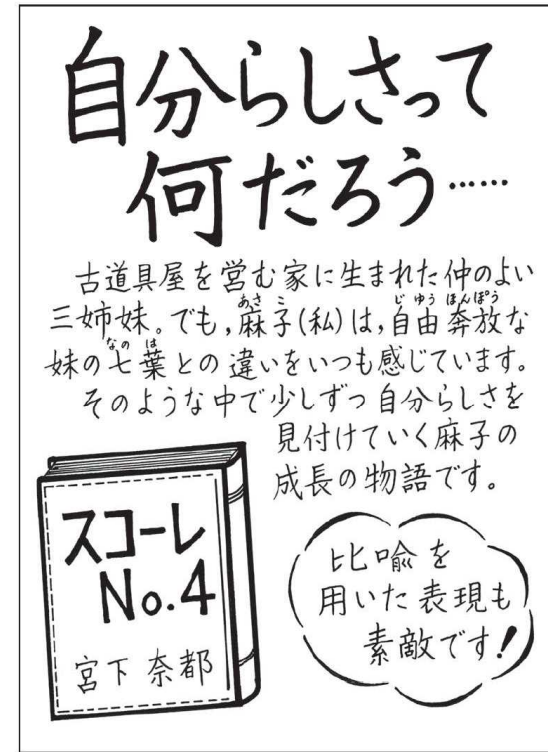 自分らしさって
何だろう……
古道具屋を営む家に生まれた仲のよい
三姉妹。でも,麻子(私)は,自由奔放な
あさこ
じゆうほんぽう
妹の七葉との違いをいつも感じています。
なのは
そのような中で少しずつ自分らしさを
見付けていく麻子の
成長の物語です。
スコーレ
No.4
宮下奈都
比喩を
用いた表現も
素敵です!